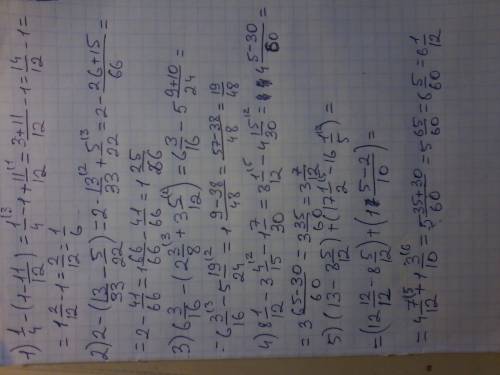 1) 1/4 - (1 - 11/12) = 1/4 - 1 + 11/12 = 3+11/12 - 1 = 14/12 - 1 =
= 1 2/12 - 1 = 2/12 = 1/6
2) 2 - (13/33 - 5/22) = 2 - 13/33 + 5/22 = 2 - 26+15/66 =
= 2 - 41/66 = 1 66/66 - 41/66 = 1 25/66
3) 6 3/16 - (2 3/8 + 3 5/12) = 6 3/16 - 5 9+10/24 =
= 6 3/16 - 5 19/24 = 1 9-38/48 = 57-38/48 = 19/48
4) 8 1/12 - 3 4/15 - 1 7/30 = 8 1/12 - 4 15/30 = 4 5-30/60 =
= 3 65-30/60 = 3 35/60 = 3 7/12
5) (13 - 8 5/12) + (17 1/2 - 16 1/5) =
= (12 12/12 - 8 5/12) + (1 5-2/10) =
= 4 7/12 + 1 3/10 = 5 35+30/60 = 5 65/60 = 6 5/60 = 6 1/12